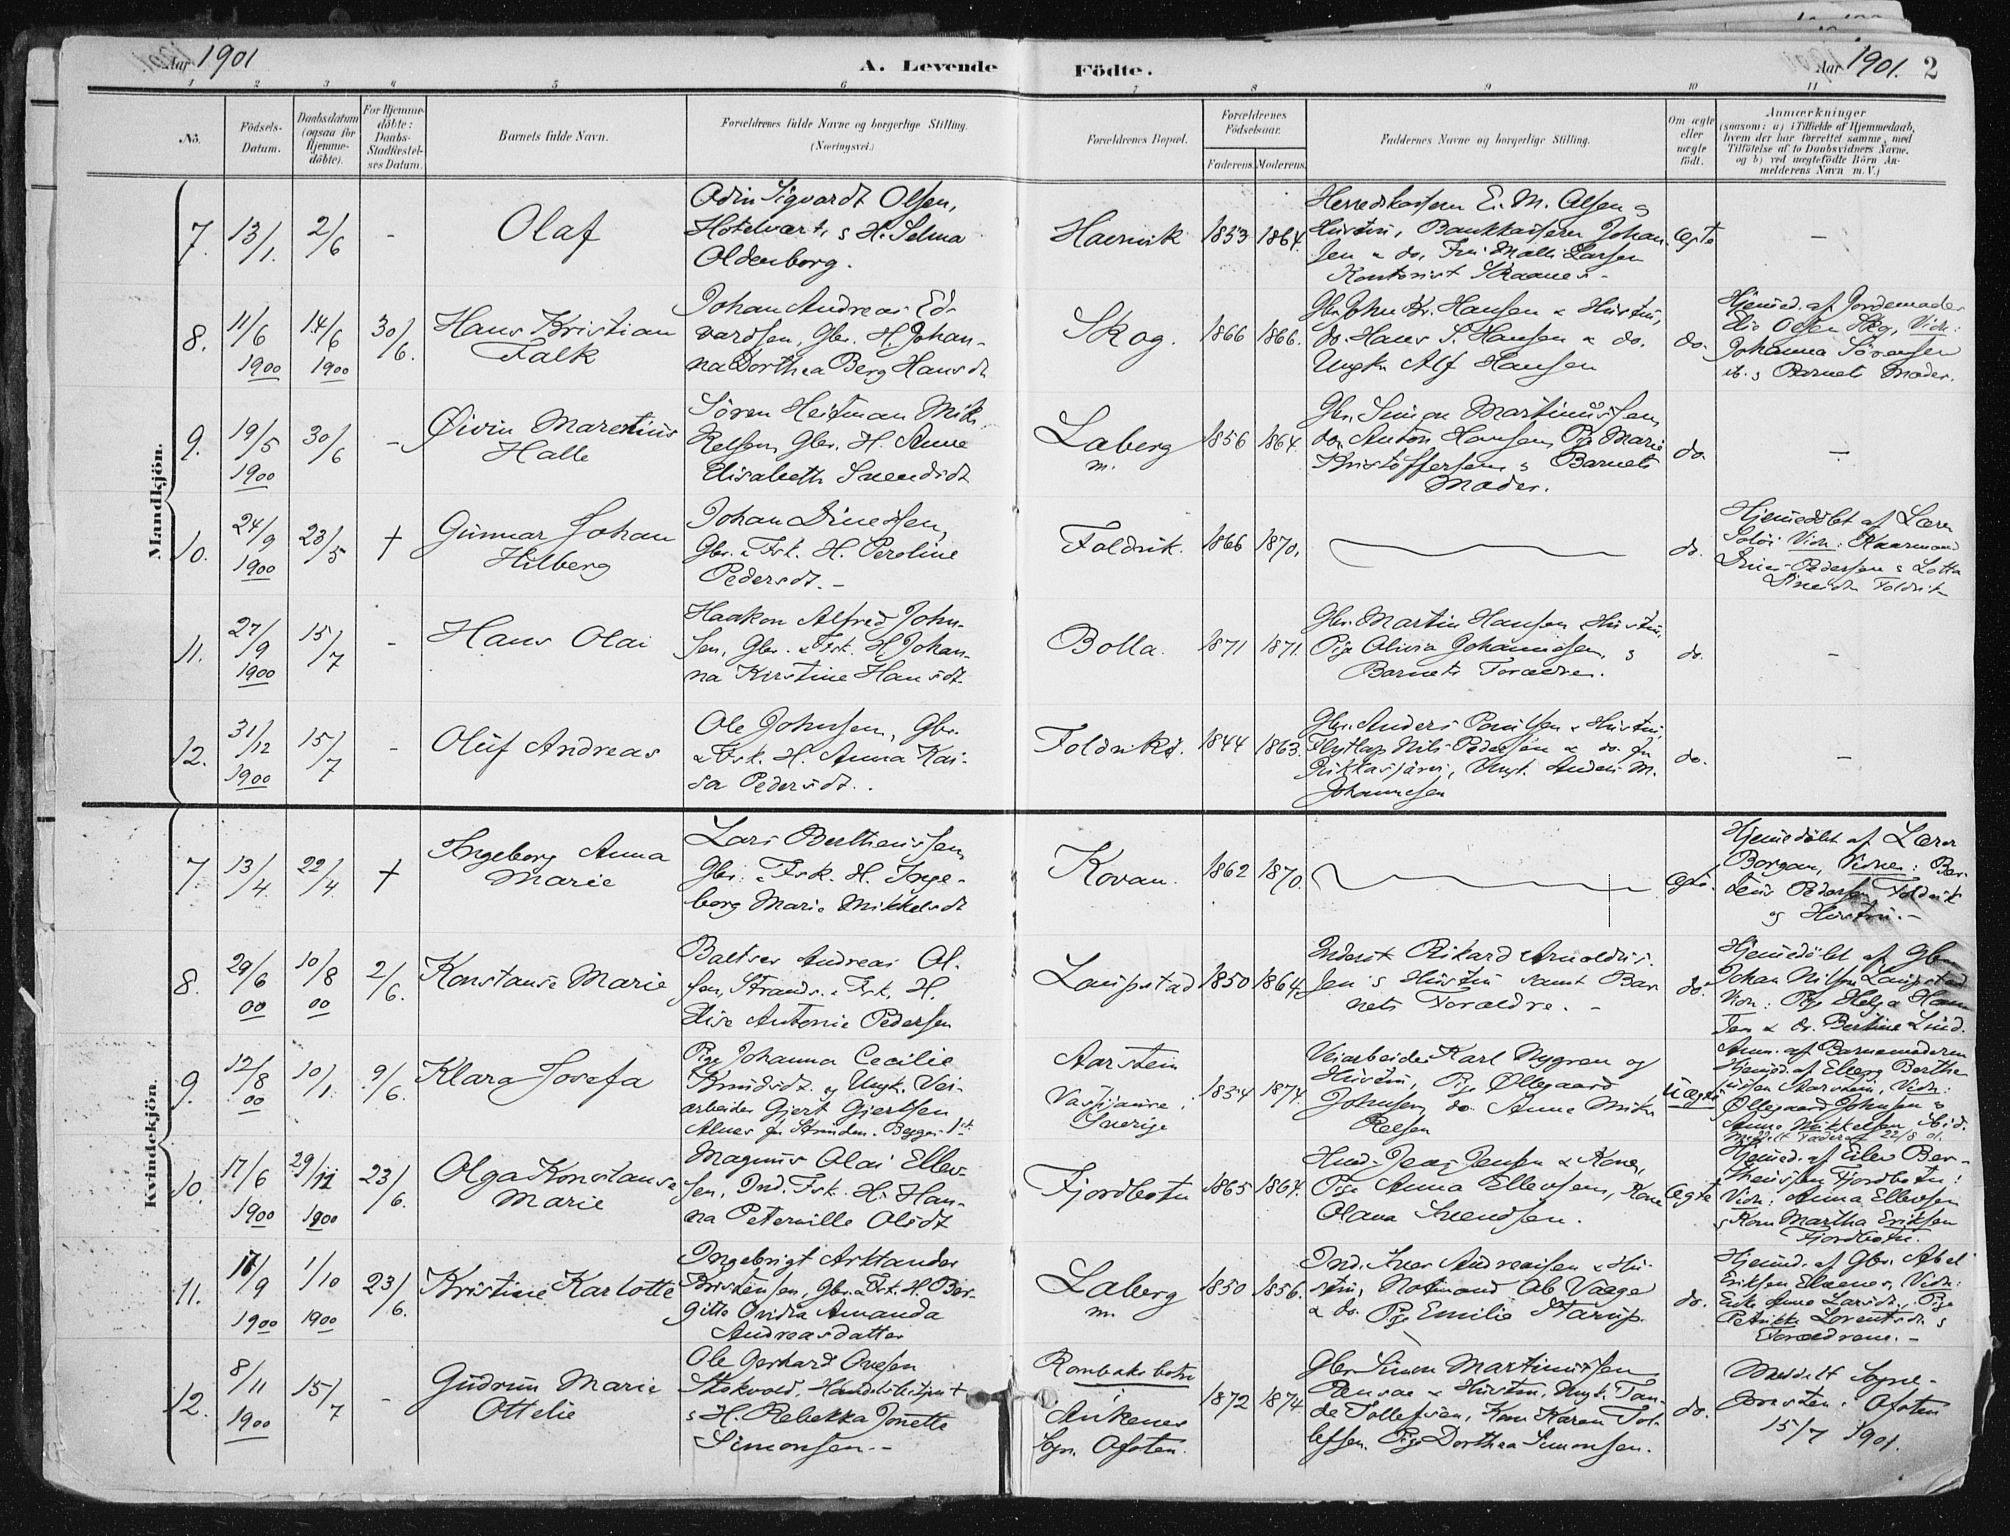 Aar 1901
A. Levende
Födte.
Aar 1901. 2
1 2 3 4 5 6 7 8 9 10 11
No.
Födsels-
Datum.
Daabsdatum
(ogsaa for
Hjemme-
døbte).
For Hjemme-
døbte:
Daabs-
Stadfæstel-
ses Datum.
Barnets fulde Navn.
Forældrenes fulde Navne og borgerlige Stilling.
(Næringsvei.)
Forældrenes Bopæl.
Forældrenes
Födselsaar.
Faderens. Moderens.
Faddernes Navne og borgerlige Stilling.
Om ægte
eller
uægte
født.
Anmærkninger
(saasom: a) i Tilfælde af Hjemmedaab,
hvem der har forrettet samme, med
Tilføielse af to Daabsvidners Navne,
og b) ved uægtefödte Börn An-
melderens Navn m. V.)
Mandkjön.
7. 13/1. 2/6 - Olaf
Odin Sigvardt Olsen,
Hotelvært, s H. Selma
Oldenborg.
Havnvik 1853 1864.
E. M. Olsen s
Hustru, Johan-
sen & do. Larsen
Kontorist
ægte -
8. 11/6 1900 14/6 1900 30/6. Hans Kristian
Falk
Johan Andreas Ed-
vardsen, Gbr. H. Johan-
na Dorthea Berg Hansdt
Skog. 1866 1866.
Gbr. John Kr. Hansen & Hustru,
do. Hans S. Hansen & do.
Ungk. Alf Hansen
do.
Hjemmed. af Jordemoder
Olsen Skog, Vidn:
Johanna Sørensen
ib. s Barnets Moder.
9. 19/5 1900 30/6 - Øivin Marentius
Halle
Søren Heitman Mik-
kelsen, Gbr. H. Anne
Elisabeth Svendsdt
Laberg
m.
1856 1864.
Gbr. Simon Martinussen,
do. Anton Hansen, Pige Marie
Kristoffersen s Barnets
Moder.
do. -
10. 24/9 1900 23/5 † Gunnar Johan
Hilberg
Johan Dinessen,
Gbr. & Fsk. H. Peroline
Pedersdt. -
Foldvik. 1866 1870.
do.
Hjemmedøbt af Lærer
Vidn:
Pedersen s Lotta
Foldvik
11. 27/9 1900 15/7 - Hans Olai
Haakon Alfred John-
sen, Gbr. & Fsk. H. Johan-
na Kirstine Hansdt.
Bolla. 1871 1871.
Gbr. Martin Hansen & Hustru,
Pige Olivia Johannesen, s
Barnets Forældre.
do. -
12. 31/12 1900 15/7 - Oluf Andreas
Ole Johnsen, Gbr.
& Fsk. H. Anna Kai-
sa Pedersdt.
Foldvik. 1844 1863.
Gbr. Anders Poulsen & Hustru,
Nils Pedersen & do. fra
Ungk. Anders M.
Johannesen
do. -
Kvindekjön.
7. 13/4. 22/4. † Ingeborg Anna
Marie
Lars Bertheussen,
Gbr. & Fsk. H. Inge-
borg Marie Mikkelsdt
Kovan. 1862 1870.
ægte.
Hjemmedøbt af Lærer
Borgan, Vidne:
Pedersen Foldvik
og Hustru. -
8. 29/6 00 10/8 00 2/6. Konstanse Marie
Baltser Andreas Ol-
sen, Strands. & Fsk. H.
Elise Antonie Pedersen
Laupstad 1850 1864.
Inderst Rikard Arnoldus-
sen s Hustru samt Bar-
nets Forældre. -
do.
Hjemmedøbt af Gbr
Johan Nilsen Laupstad
Vidn: Pige Helga Han-
sen & do. Bertine Lind.
9. 12/8 00 10/1. 9/6. Klara Josefa
Pige Johanna Cecilie
Knudsdt. og Ungk. Vei-
arbeider Gjert Gjertsen
Alnes fra Stranden. Begges 1ste
Aarstein
Vassijaure,
Sverige
1854 1874.
Veiarbeider Karl Nygren og
Hustru, Pige Øllegaard
Johnsen, do. Anne Mik-
kelsen
uægte
Anm. af Barnemoderen
Hjemmed. af Elberg Berthe-
ussen Aarstein, Vidn:
Øllegaard Johnsen s
Anne Mikkelsen, ibid.
Meddelt Faderen 22/8 01.
10. 17/6 1900 29/11 1900 23/6. Olga Konstanse
Marie
Magnus Olai Ellev-
sen, Ind. Fsk. H. Han-
na Peternille Olsdt
Fjordbotn 1865 1864.
Jens Jensen & Kone,
Pige Anna Ellevsen, Kone
Olava Svendsen.
ægte
Hjemmed. af Eilev Ber-
theussen Fjordbotn:
Vidn: Anna Ellevsen
s Kone Martha Eriksen
Fjordbotn.
11. 11/9 1900 1/10 1900 23/6. Kristine Karlotte
Ingebrigt Arktander
Kristensen, Gbr. & Fsk. H. Ber-
gitte Ovidia Amanda
Andreasdatter
Laberg
m.
1850 1856.
Ind. Iver Andreassen & Hu-
stru, Notmand Ole Vaage
& do. Pige Emilie
do.
Hjemmd. af Gbr. Abel
Eriksen Elvenes, Vidn:
Enke Anne Larsdt., Pige
Petrikke Lorentsdt. s
Forældrene. -
12. 8/11 1900 15/7 - Gudrun Marie
Ottelie
Ole Gerhard Ovesen
Stokvold, Handelsbetjent
s H. Rebekka Jonette
Simonsen. -
Rombaksbotn
i
Ankenes
Sgn. Ofoten.
1872 1874.
Gbr. Simon Martinussen
& Hustru, Ungk. Tan-
de Tollefsen, Kone Karen Tol-
lefsen, Pige Dorthea Simonsen.
do.
Meddelt Sogne-
presten i Ofoten
15/7 1901.